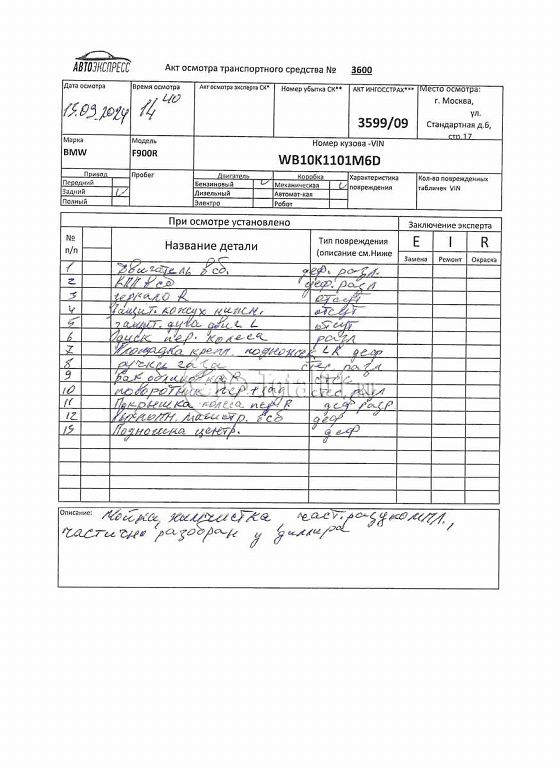 АВТОЭКСПРЕСС
Акт осмотра транспортного средства № 3600
Дата осмотра
Время осмотра
Акт осмотра эксперта СК*
Номер убытка СК**
АКТ ИНГОССТРАХ***
Место осмотра:
г. Москва,
ул.
Стандартная д.6,
стр.17
15.09.2024
14 40
3599/09
Марка
Модель
Номер кузова -VIN
BMW
F900R
WB10K1101M6D
Привод
Пробег
Двигатель
Коробка
Характеристика повреждения
Кол-во поврежденных табличек VIN
Передний
Бензиновый V
Механическая V
Задний V
Дизельный
Автомат-кая
Полный
Электро
Робот
При осмотре установлено
Заключение эксперта
№ п/п
Название детали
Тип повреждения (описание см.Ниже
E I R
Замена Ремонт Окраска
1 Двигатель в сб. деф. разл.
2 КПП в сб деф. разл
3 зеркало R отсут
4 Защит. кожух нижн. отсут
5 защит. дуга L отсут
6 Диск пер. колеса разл
7 Площадка крепл. подножек LR деф
8 ручка газа разл
9 R
10 поворотник пер + зад разл
11 Покрышка колеса пер R деф разр
12 магистр. в сб деф
13 Подножка центр. деф
Описание: Мойка, химчистка част. разукомпл.,
частично разобран у диллера